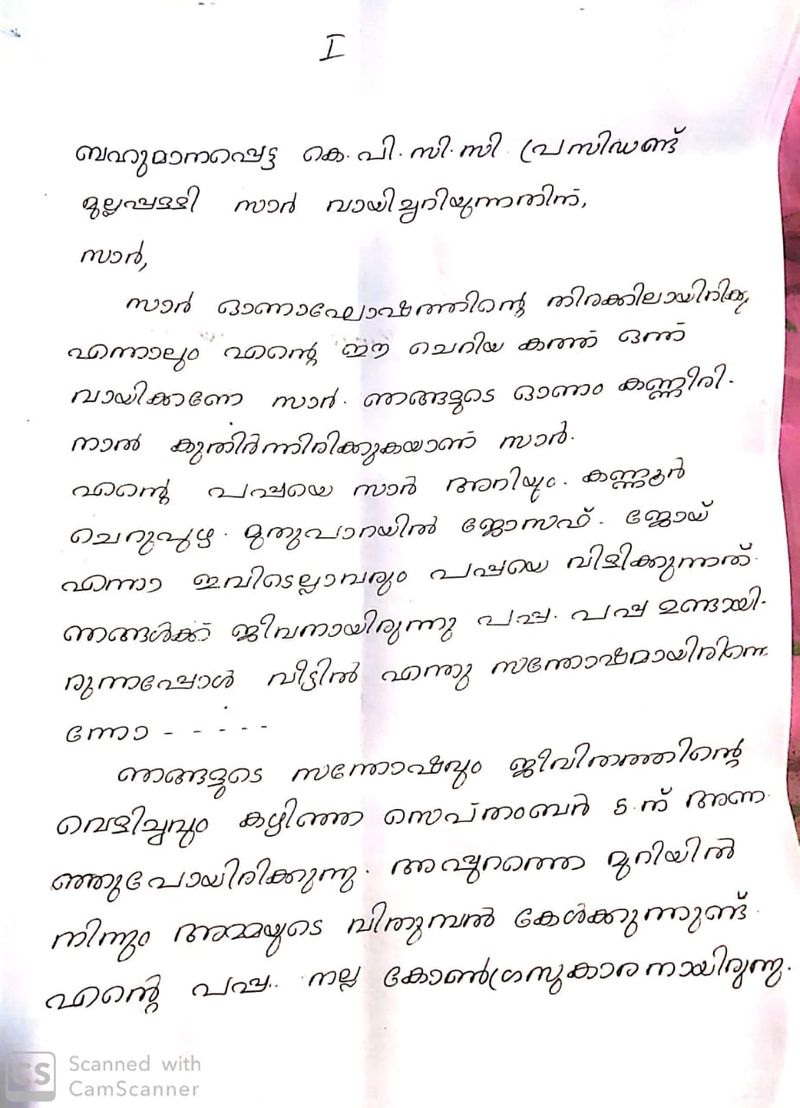 I
ബഹുമാനപ്പെട്ട കെ.പി.സി.സി പ്രസിഡണ്ട്
മുല്ലപ്പള്ളി സാർ വായിച്ചറിയുന്നതിന്,
സാർ,
സാർ ഓണാഘോഷത്തിന്റെ തിരക്കിലായിരിക്കും
എന്നാലും എന്റെ ഈ ചെറിയ കത്ത് ഒന്ന്
വായിക്കാണേ സാർ. ഞങ്ങളുടെ ഓണം കണ്ണീരി-
നാൽ കുതിർന്നിരിക്കുകയാണ് സാർ.
എന്റെ പപ്പയെ സാർ അറിയും. കണ്ണൂർ
ചെറുപുഴ. മുതുപാറയിൽ ജോസഫ്. ജോയ്
എന്നാ ഇവിടെല്ലാവരും പപ്പയെ വിളിക്കുന്നത്.
ഞങ്ങൾക്ക് ജീവനായിരുന്നു പപ്പ. പപ്പ ഉണ്ടായി-
രുന്നപ്പോൾ വീട്ടിൽ എന്തു സന്തോഷമായിരുന്നെ
ന്നോ - - - - -
ഞങ്ങളുടെ സന്തോഷവും ജീവിതത്തിന്റെ
വെളിച്ചവും കഴിഞ്ഞ സെപ്തംബർ 5 ന് അണ
ഞ്ഞുപോയിരിക്കുന്നു. അപ്പുറത്തെ മുറിയിൽ
നിന്നും അമ്മയുടെ വിതുമ്പൽ കേൾക്കുന്നുണ്ട്.
എന്റെ പപ്പ.. നല്ല കോൺഗ്രസുകാരനായിരുന്നു.
CS Scanned with
CamScanner